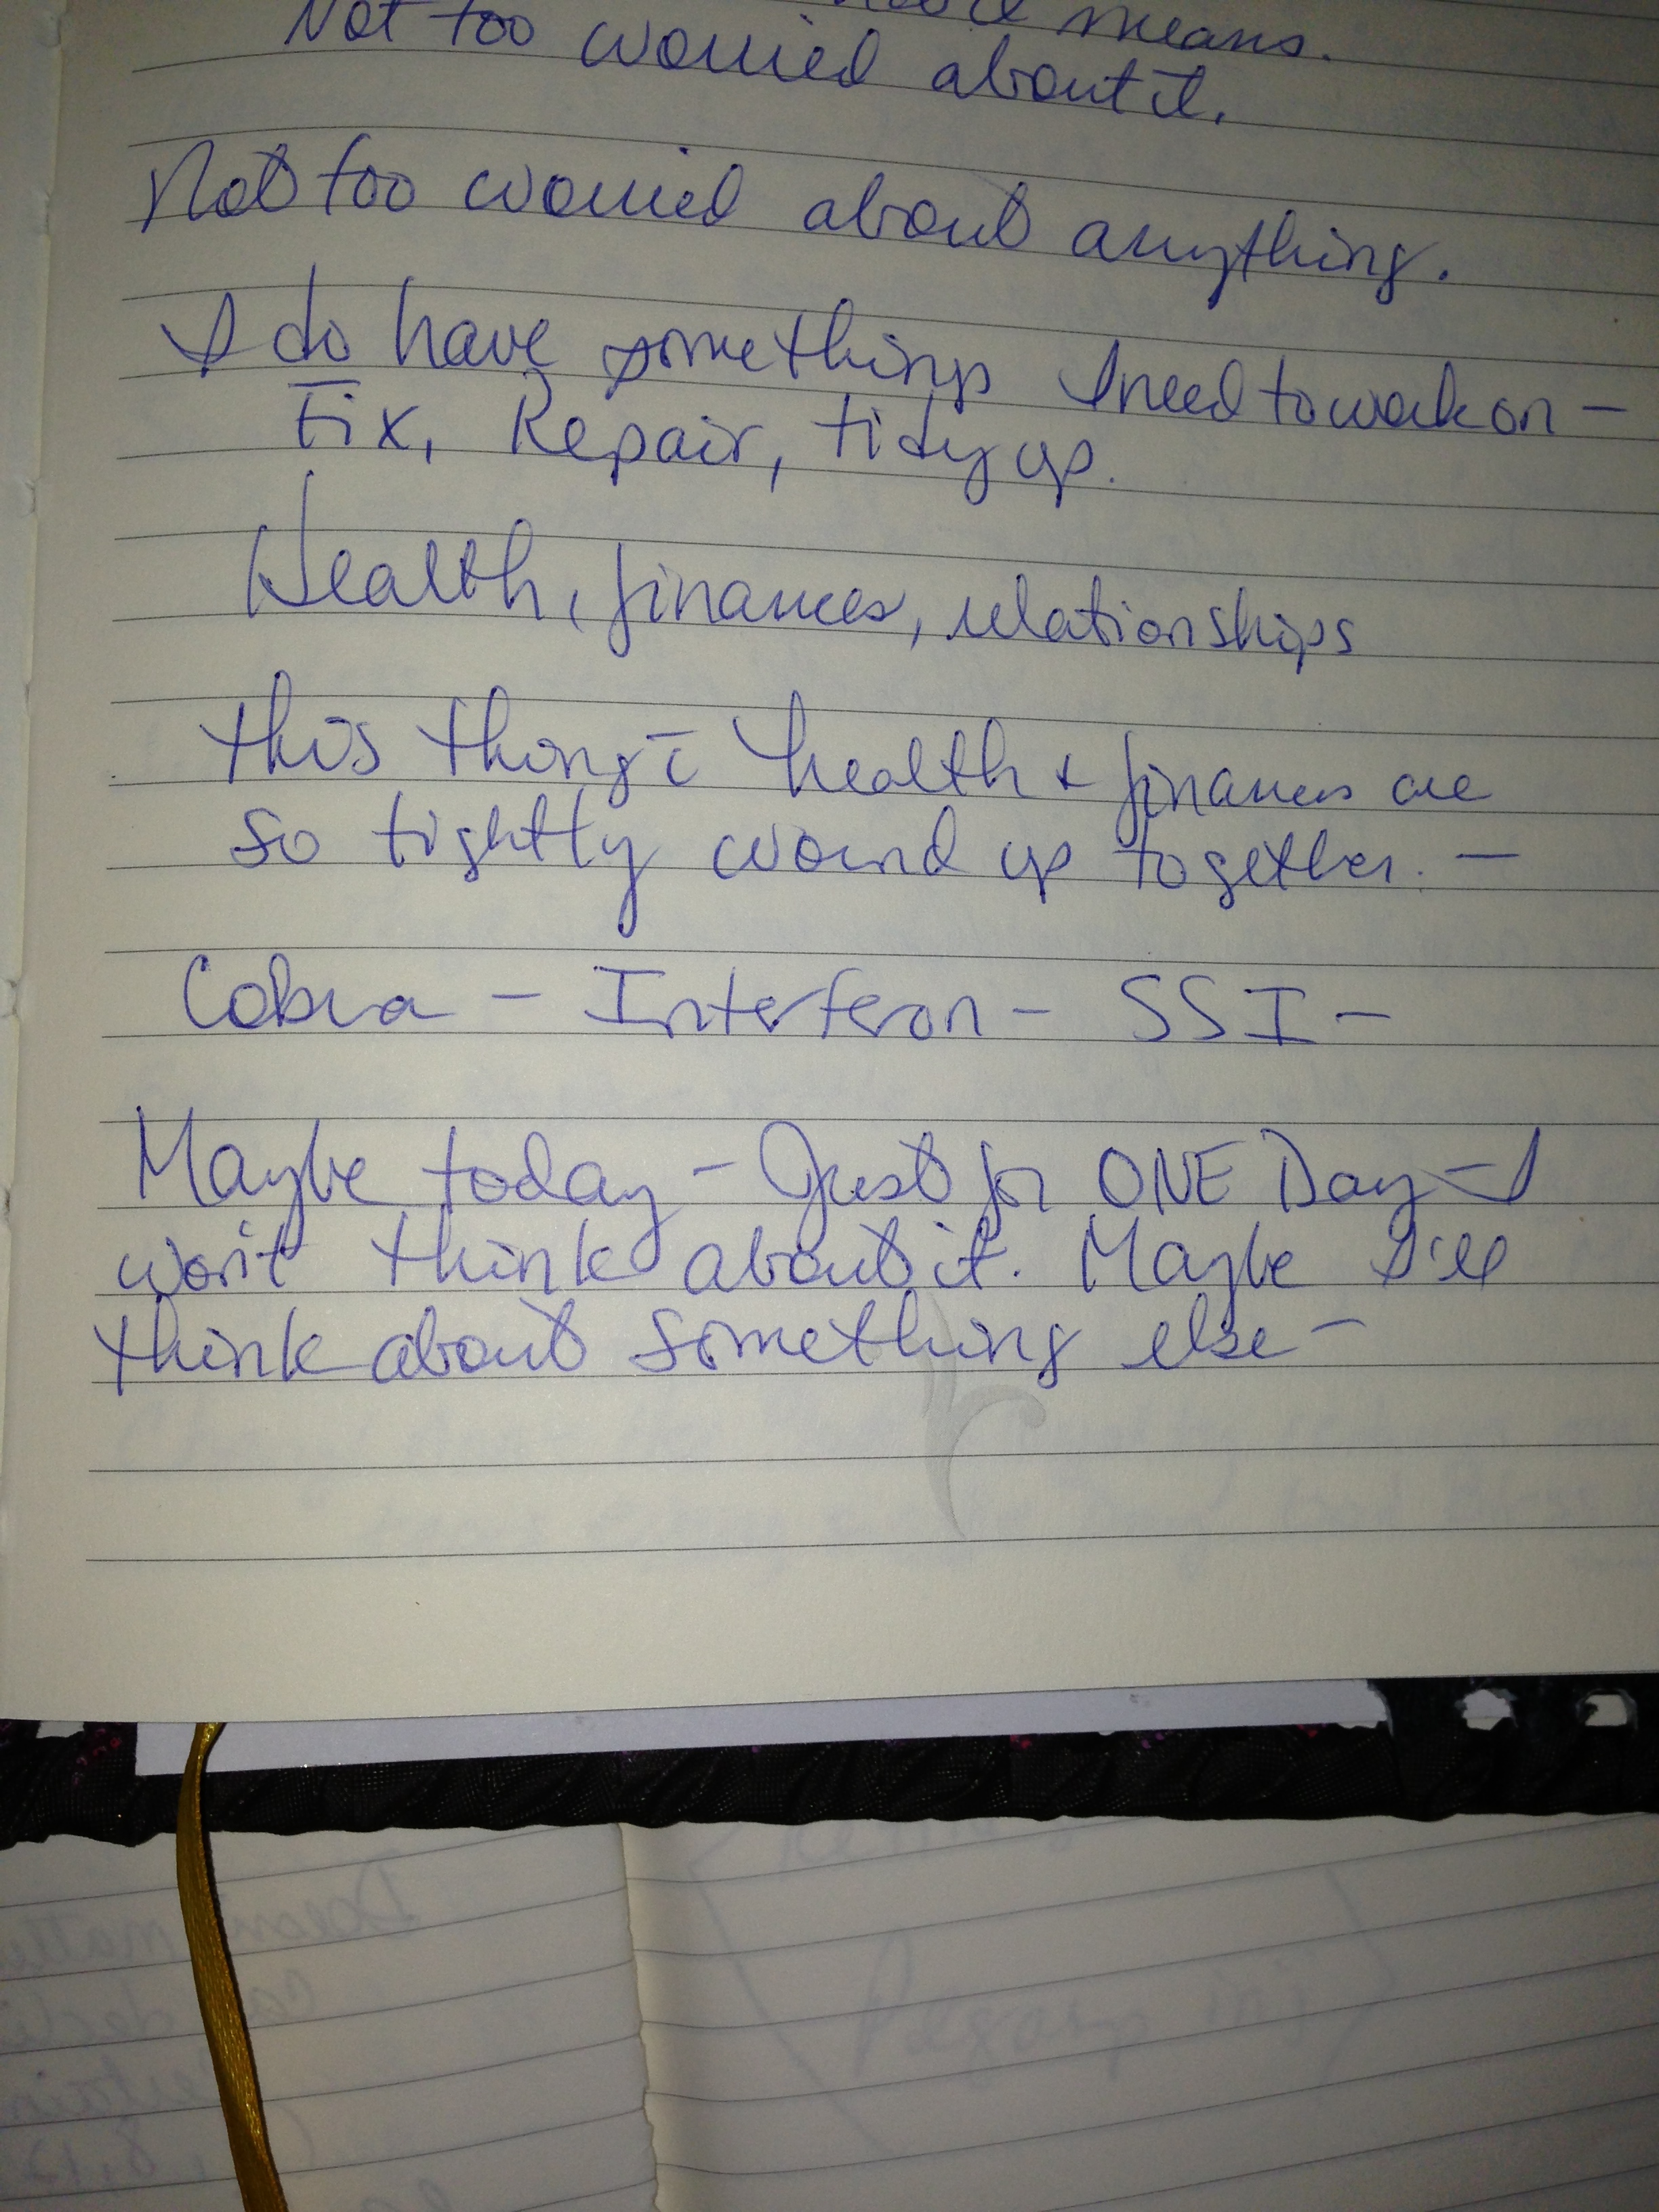 means.
Not too worried about it.
Not too worried about anything.
I do have some things I need to work on –
Fix, Repair, tidy up.
Health, finances, relationships
this thing c̄ health + finances are
so tightly wound up together. –
Cobra – Interferon – SSI –
Maybe today – Just for ONE Day – I
won't think about it. Maybe I'll
think about something else –